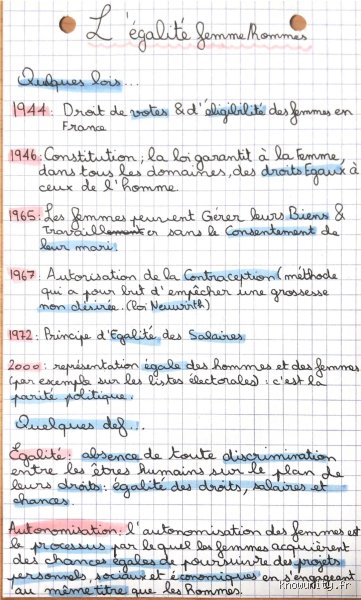 L'égalité femme/hommes
Quelques lois...
1944: Droit de votes & d'éligibilité des femmes en
France
1946: Constitution, la loi garantit à la femme,
dans tous les domaines, des droits Egaux à
ceux de l'homme.
1965: Les femmes peuvent Gérer leurs Biens &
Travailler sans le Consentement de
leur mari.
1967: Autorisation de la Contraception (méthode
qui a pour but d'empêcher une grossesse
non désirée. (loi Neuwirth)
1972: Principe d'Egalité des Salaires
2000: représentation égale des hommes et des femmes
(par exemple sur les listes électorales): c'est la
parité politique.
Quelques def:.
Egalité: absence de toute discrimination
entre les êtres humains sur le plan de
leurs droits: égalité des droits, salaires et
chances.
Autonomisation: l'autonomisation des femmes est
le processus par lequel les femmes acquièrent
des chances égales de poursuivre des projets
personnels, sociaux et économiques en s'engageant
au même titre que les Hommes.
knowunity.fr